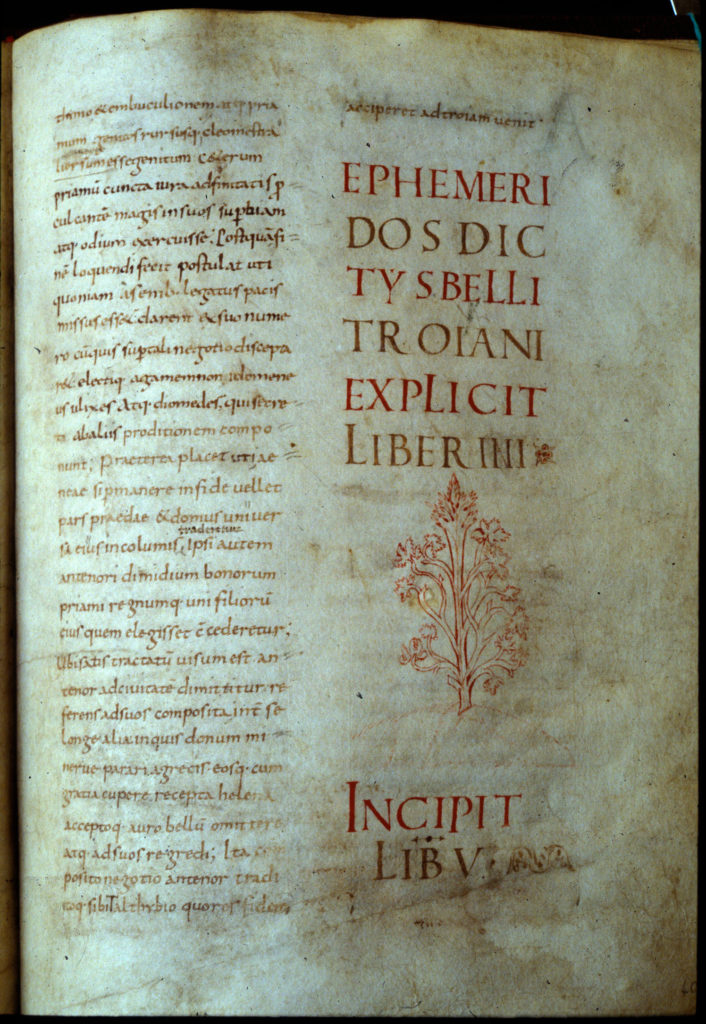 thimo & embuculionem atq; pria
mum genitos rursusq; cleomestra
liersum esse genitum Ceterum
priamū cuncta iura adfinitatis p̄
culcantē magis in suos suꝑbiam
atq; odium exercuisse; Postquā fi=
nē loquendi fecit postulat uti
quoniam a senib. legatus pacis
missus ess& clarent & suo nume
ro cū quis suꝑ tali negotio discepta
r& electiq; agamemnon idomene
us ulixes atq; diomedes, qui secre
to ab aliis proditionem compo
nunt; Praeterea placet uti ae=
neae si ꝑmanere in fide vellet
pars praedae & domus univer
sa eius incolumis, Ipsi autem
traderetur
antenori dimidium bonorum
priami regnumq; uni filiorū
eius quem elegisset c̄cederetur;
Ubi satis tractatū visum est an=
tenor ad civitatē dimittitur re
ferens ad suos composita int̄ se
longe alia in quis donum mi
nervę parari a grecis eosq; cum
gratia cupere recepta helena
acceptoq; auro bellū omittere
atq; ad suos regredi; Ita com
posito negotio antenor tradi
toq; sibi talthybio quo res fidem
acciperet ad troiam venit.
EPHEMERI
DOS DIC
TYS BELLI
TROIANI
EXPLICIT
LIBER IIII
INCIPIT
LIB V